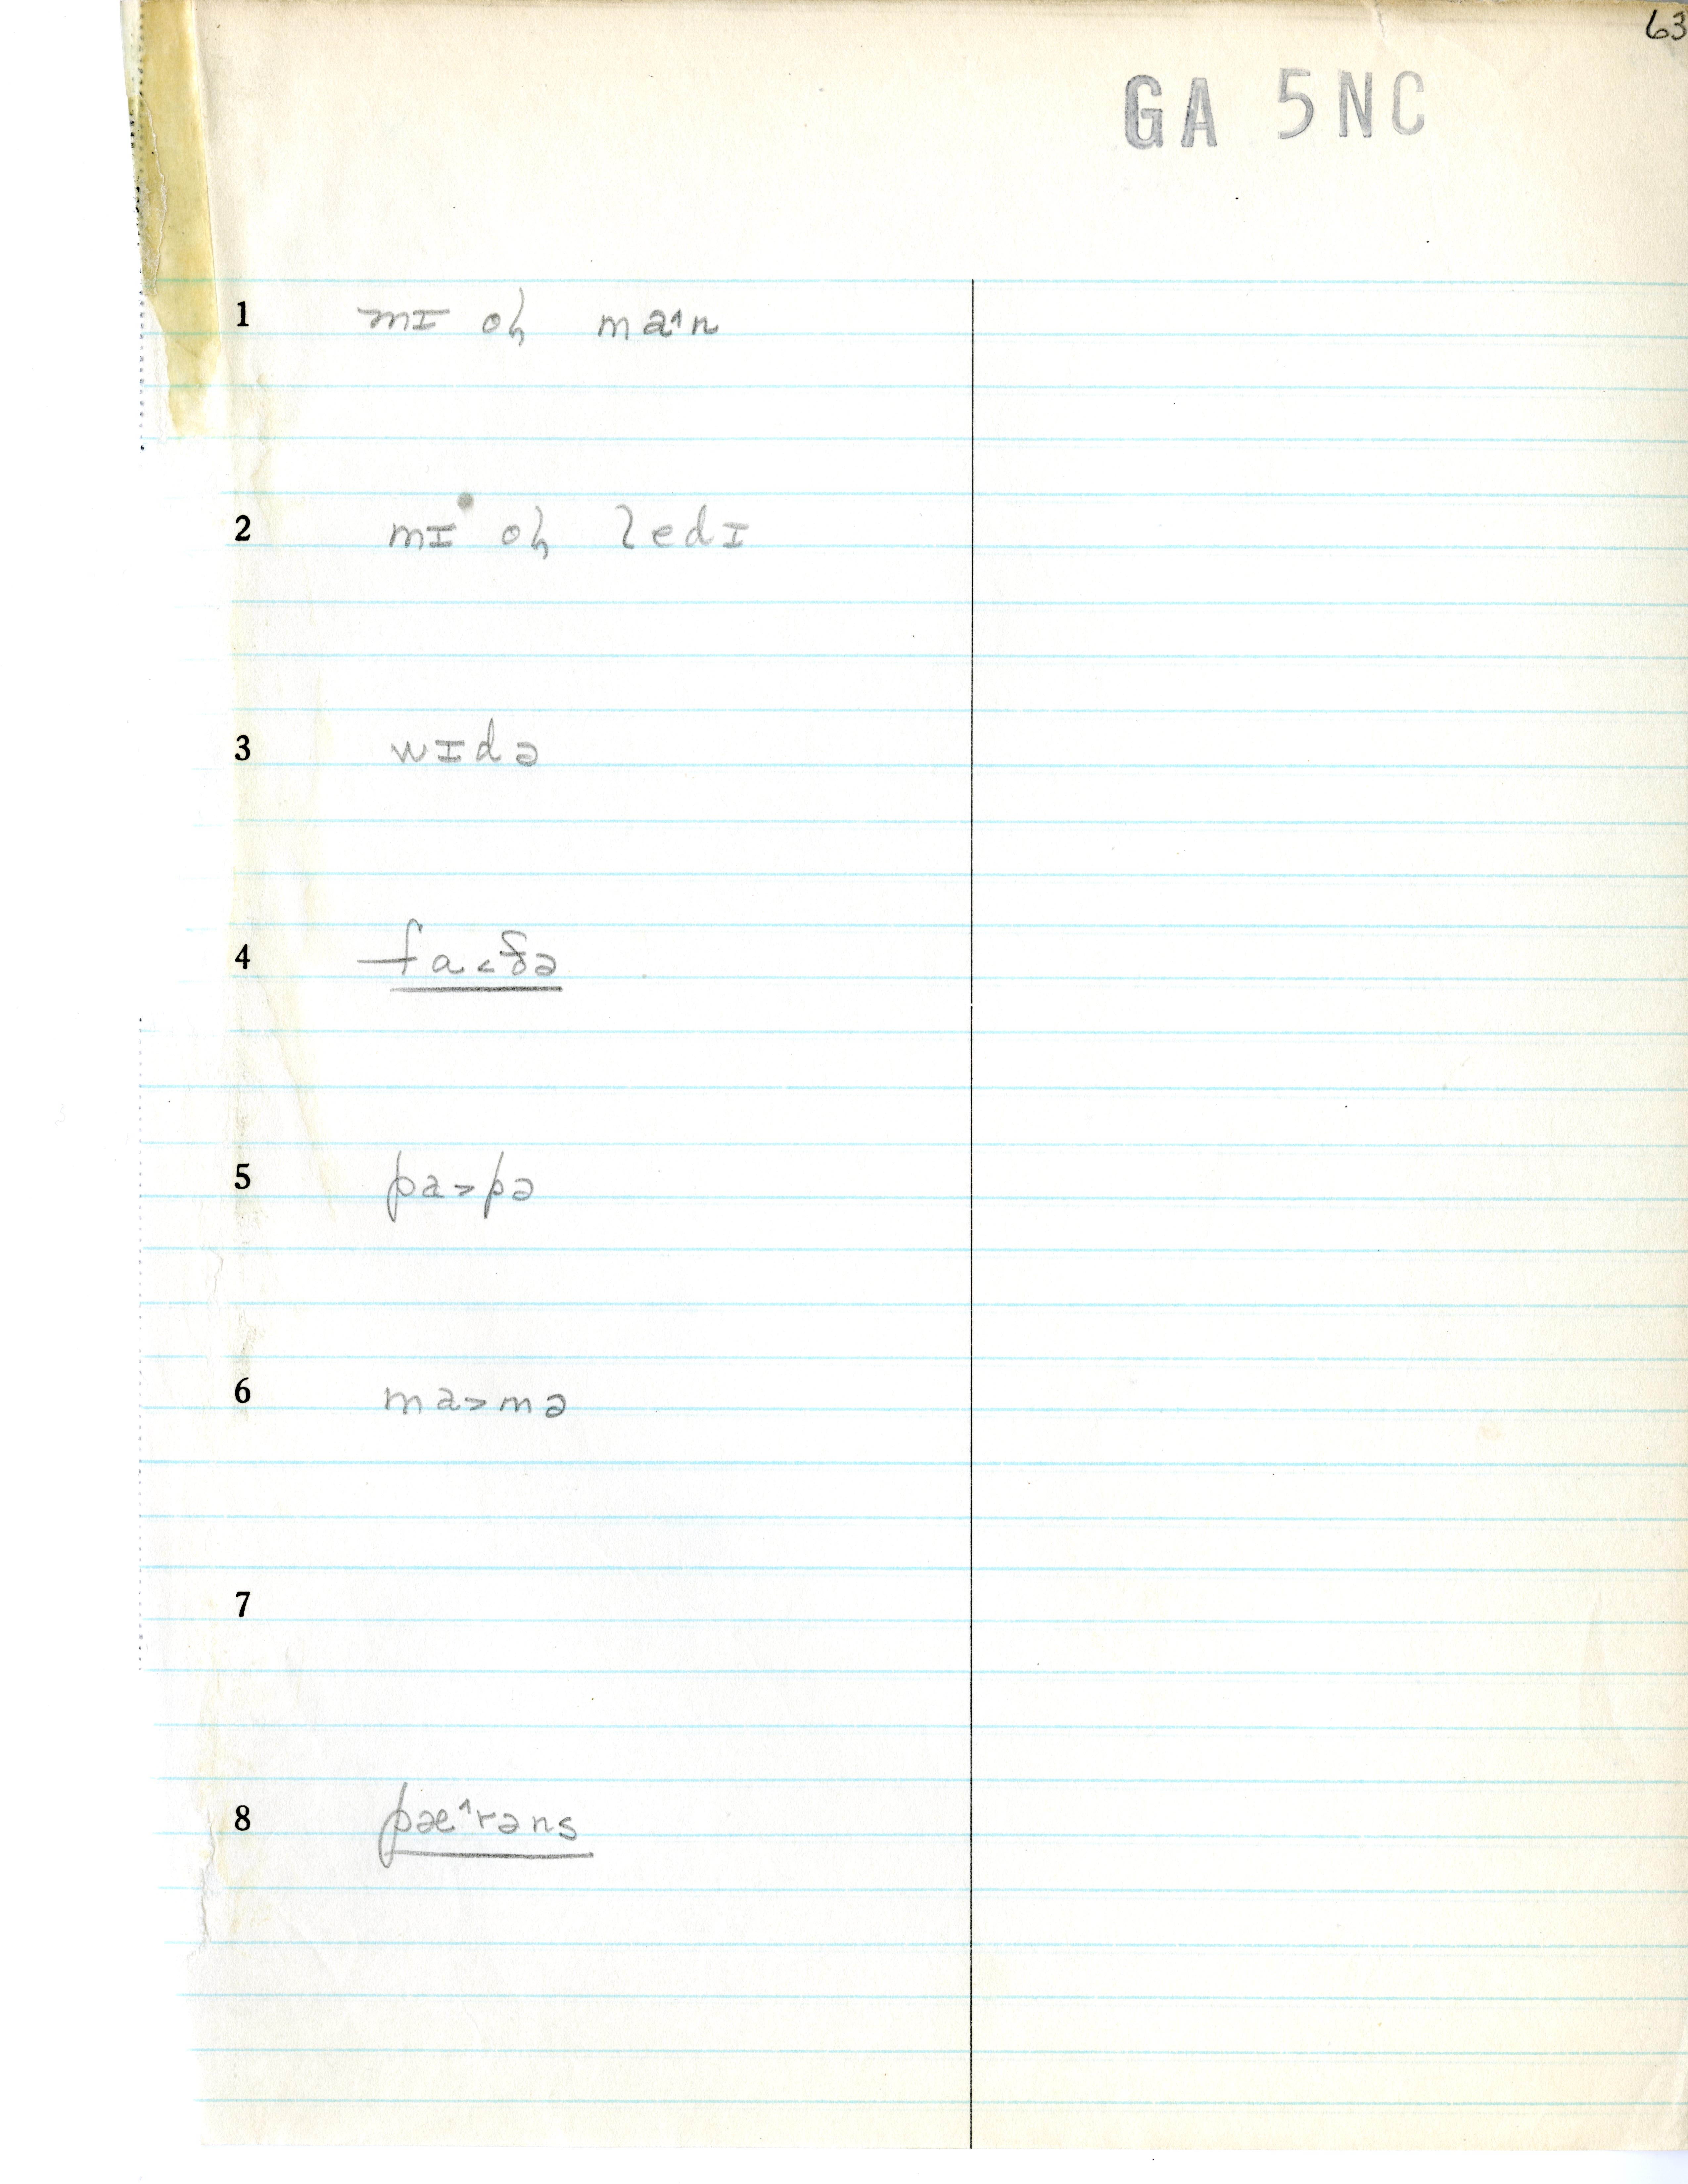 63
GA 5NC
1 mɪ oɫ̩ ma˄n
2 mɪ oɫ̩ ledɪ
3 wɪdə
4 fɑ˂ðə
5 pa˃pə
6 ma˃mə
7
8 pæ˄rəns